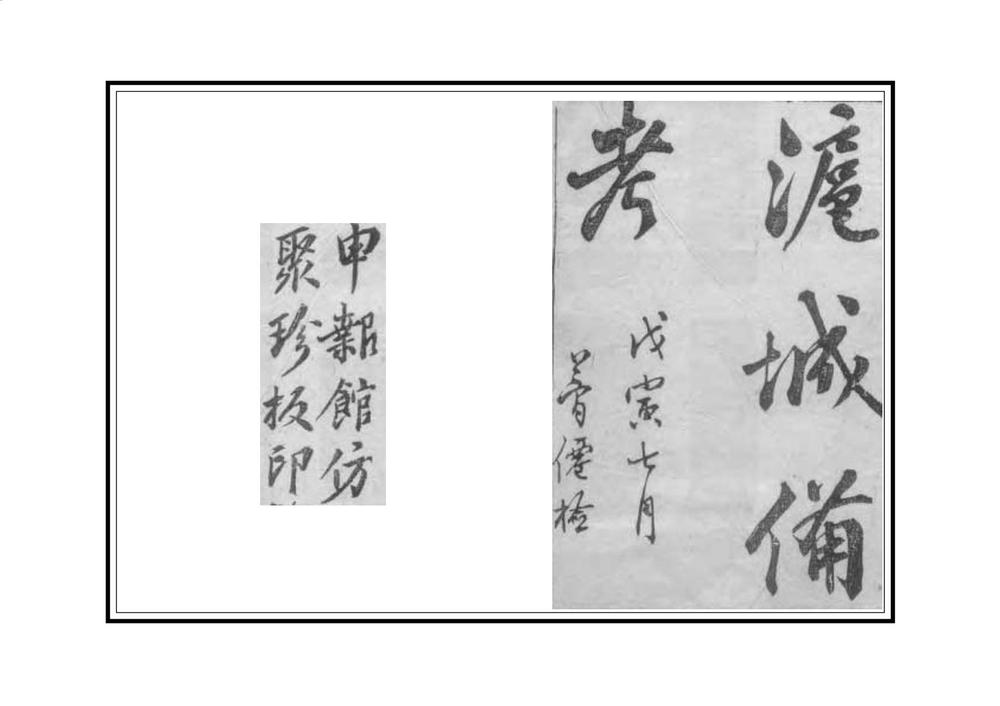 滬城備
考
戊寅七月
僊檢
申報館仿
聚珍板印